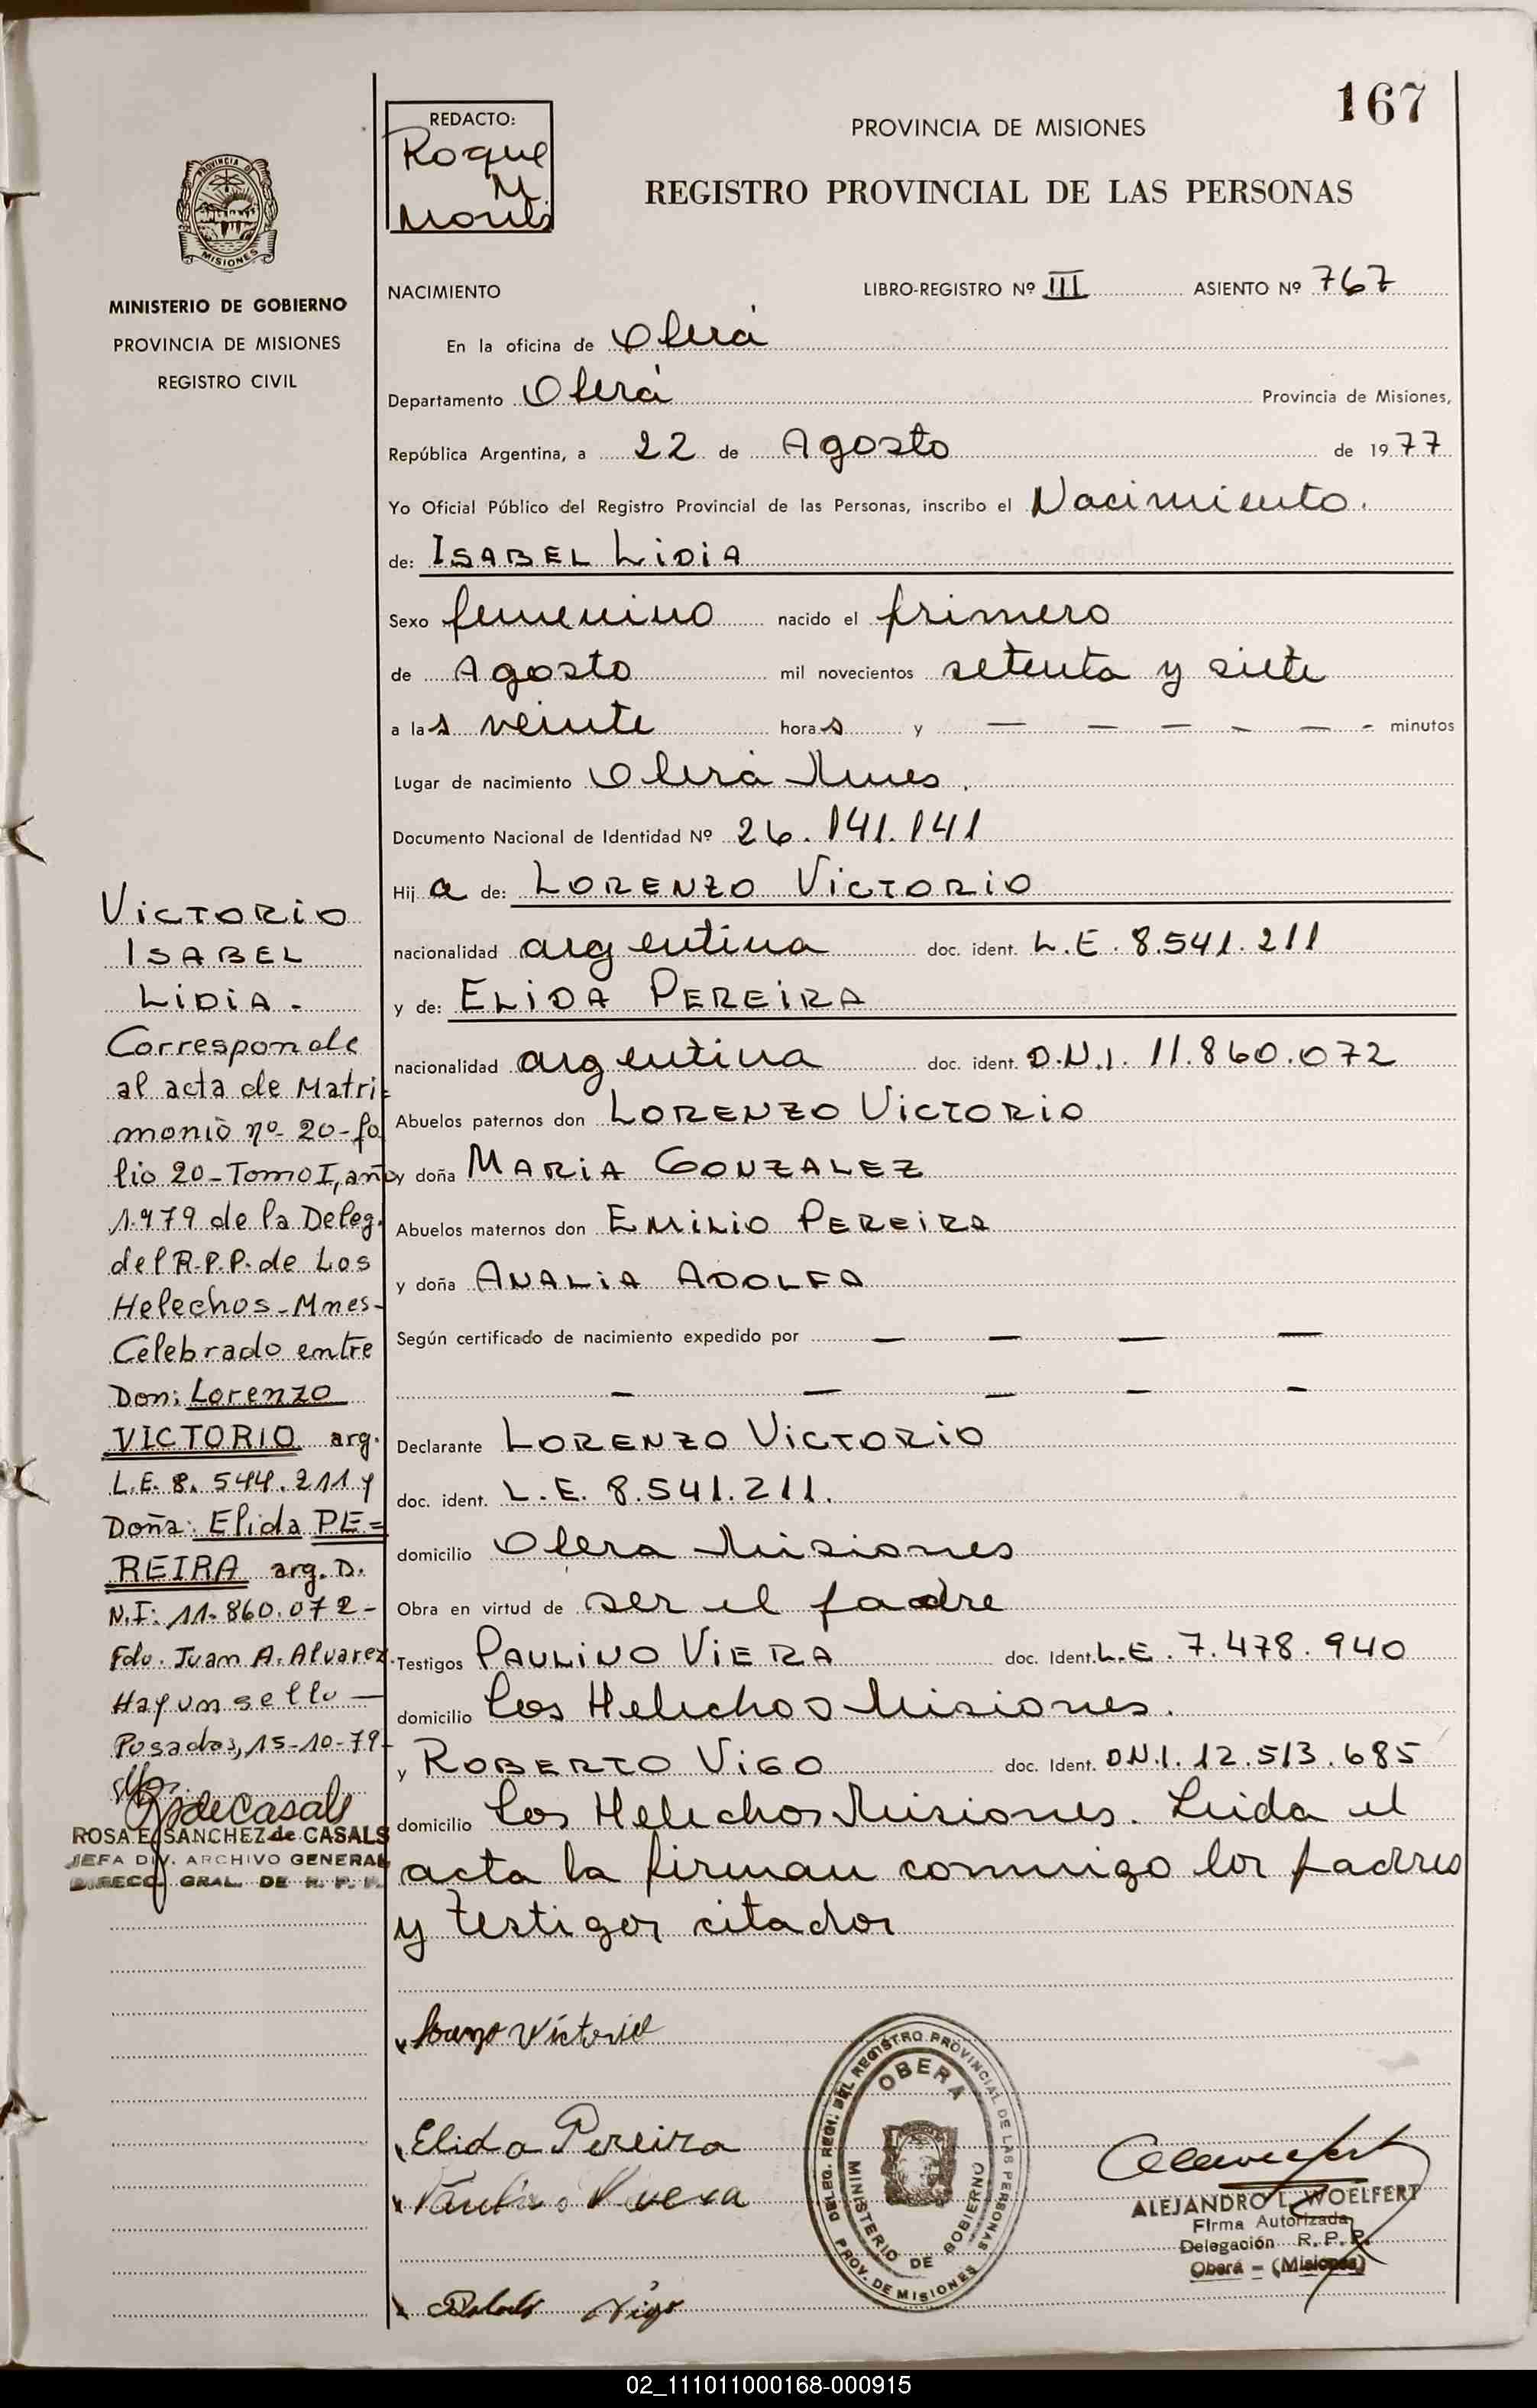 167
REDACTO:
Roque
M
PROVINCIA DE MISIONES
REGISTRO PROVINCIAL DE LAS PERSONAS
PROVINCIA D MISIONES
MINISTERIO DE GOBIERNO
PROVINCIA DE MISIONES
REGISTRO CIVIL
NACIMIENTO LIBRO-REGISTRO Nº III ASIENTO Nº 767
En la oficina de Oberá
Departamento Oberá Provincia de Misiones,
República Argentina, a 22 de Agosto de 1977
Yo Oficial Público del Registro Provincial de las Personas, inscribo el Nacimiento.
de: ISABEL LIDIA
Sexo femenino nacido el primero
de Agosto mil novecientos setenta y siete
a las veinte horas y — — — — — - minutos
Lugar de nacimiento Oberá Mnes.
Documento Nacional de Identidad Nº 26.141.141
Hija de: LORENZO VICTORIO
nacionalidad argentina doc. ident. L.E. 8.541.211
y de: ELIDA PEREIRA
nacionalidad argentina doc. ident. D.N.I. 11.860.072
Abuelos paternos don LORENZO VICTORIO
y doña MARIA GONZALEZ
Abuelos maternos don EMILIO PEREIRA
y doña ANALIA ADOLFA
Según certificado de nacimiento expedido por — — — —
— — — — —
Declarante LORENZO VICTORIO
doc. ident. L.E. 8.541.211.
domicilio Obera Misiones
Obra en virtud de ser el padre
Testigos PAULINO VIERA doc. Ident. L.E. 7.478.940
domicilio Los Helechos Misiones.
y ROBERTO VIGO doc. Ident. D.N.I. 12.513.685
domicilio Los Helechos Misiones. Leida el
acta la firman conmigo los padres
y testigos citados
VICTORIO
ISABEL
LIDIA.
Corresponde
al acta de Matri=
monio nº 20-fo
lio 20-Tomo I, año
1.979 de la Deleg.
del R.P.P. de Los
Helechos-Mnes-
Celebrado entre
Don: Lorenzo
VICTORIO arg.
L.E. 8.544.211 y
Doña: Elida PE=
REIRA arg. D.
N.I: 11.860.072-
Fdo. Juan A. Alvarez.
Hay un sello —
Posadas, 15-10-79-
RdeCasals
ROSA E. SANCHEZ de CASALS
JEFA DIV. ARCHIVO GENERAL
DIRECC. GRAL. DE R. P. P.
Lorenzo Victorio
Elida Pereira
Paulino Viera
Roberto Vigo
DELEG. REGI. DEL REGISTRO PROVINCIAL DE LAS PERSONAS
OBERA
MINISTERIO DE GOBIERNO
PROV. DE MISIONES
ALEJANDRO L. WOELFERT
Firma Autorizada
Delegación R.P.P.
Oberá - (Misiones)
02_111011000168-000915